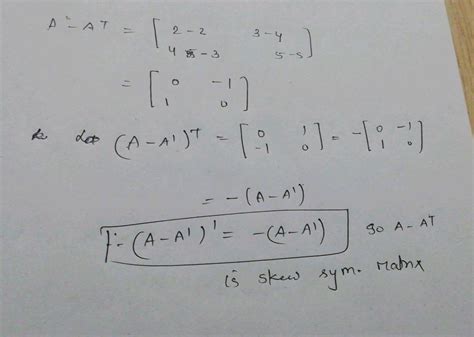 A - AT = [ 2-2 3-4
4-3 5-5 ]
= [ 0 -1
1 0 ]
Let (A-A')T = [ 0 1 = - [ 0 -1
-1 0 ] 1 0 ]
= -(A-A')
(A-A')' = -(A-A') so A-AT
is skew sym. Matrix